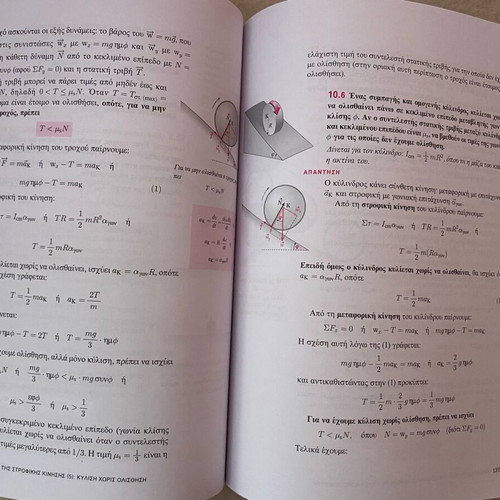 χό ασκούνται οι εξής δυνάμεις: το βάρος του w = mg, που
τις συνιστώσες wx με wx = mg ημφ και wy με wy =
η κάθετη δύναμη N από το κεκλιμένο επίπεδο με N =
συνφ (αφού ΣFy = 0) και η στατική τριβή T.
τριβή μπορεί να πάρει τιμές από μηδέν έως και
N, δηλαδή 0 < T ≤ μsN. Όταν T = Tστ (max) =
μα είναι έτοιμο να ολισθήσει, οπότε, για να μην
τροχός, πρέπει
T < μsN
ταφορική κίνηση του τροχού παίρνουμε:
F = maK ή wx − T = maK ή
mg ημφ − T = maK (1)
φική κίνηση του:
τ = Icmαγων ή TR = 1/2 mR² αγων ή
T = 1/2 mRαγων
λίεται χωρίς να ολισθαίνει, ισχύει aK = αγων R, οπότε
χέση γράφεται:
T = 1/2 maK ή aK = 2T/m
νεται:
ημφ − T = 2T ή T = mg/3 · ημφ
χουμε ολίσθηση, αλλά μόνο κύλιση, πρέπει να ισχύει
N ή mg/3 · ημφ < μs · mg συνφ ή
μs > εφφ/3 ή μs > 1/3
συγκεκριμένο κεκλιμένο επίπεδο (γωνία κλίσης
υλίεται χωρίς να ολισθαίνει όταν ο συντελεστής
τιμές μεγαλύτερες από 1/3. Η τιμή μs = 1/3 είναι η
ΤΗΣ ΣΤΡΟΦΙΚΗΣ ΚΙΝΗΣΗΣ (5): ΚΥΛΙΣΗ ΧΩΡΙΣ ΟΛΙΣΘΗΣΗ
Για να μην ολισθήσει ο τροχός, πρέ
πει
T < μsN
ελάχιστη τιμή του συντελεστή στατικής τριβής για την οποία δεν έχ
με ολίσθηση (στην οριακή αυτή περίπτωση ο τροχός είναι έτοιμος
ολισθήσει).
10.6 Ένας συμπαγής και ομογενής κύλινδρος κυλίεται χω
να ολισθαίνει πάνω σε κεκλιμένο επίπεδο μεταβλητής
κλίσης φ. Αν ο συντελεστής στατικής τριβής μεταξύ κυλίν
και κεκλιμένου επιπέδου είναι μs, να βρεθούν οι τιμές της γων
φ για τις οποίες δεν έχουμε ολίσθηση.
Δίνεται για τον κύλινδρο: Icm = 1/2 mR², όπου m η μάζα του κα
η ακτίνα του.
ΑΠΑΝΤΗΣΗ
Ο κύλινδρος κάνει σύνθετη κίνηση: μεταφορική με επιτάχυνση
aK και στροφική με γωνιακή επιτάχυνση
Από τη στροφική κίνηση του κυλίνδρου παίρνουμε:
Στ = Icmαγων ή TR = 1/2 mR² αγων ή
T = 1/2 m(Rαγων)
Επειδή όμως ο κύλινδρος κυλίεται χωρίς να ολισθαίνει, θα ισχύει
aK = αγων R, οπότε:
T = 1/2 maK
Από τη μεταφορική κίνηση του κυλίνδρου παίρνουμε:
ΣFx = 0 ή wx − T = maK ή mg ημφ − T = maK
Η σχέση αυτή λόγω της (1) γράφεται:
mg ημφ − 1/2 maK = maK ή aK = 2/3 g ημφ
και αντικαθιστώντας στην (1) προκύπτει:
T = 1/2 m · 2/3 g ημφ = 1/3 mg ημφ
Για να έχουμε κύλιση χωρίς ολίσθηση, πρέπει να ισχύει
T < μsN, όπου N = wy = mg συνφ (διότι ΣFy = 0)
Τελικά έχουμε: